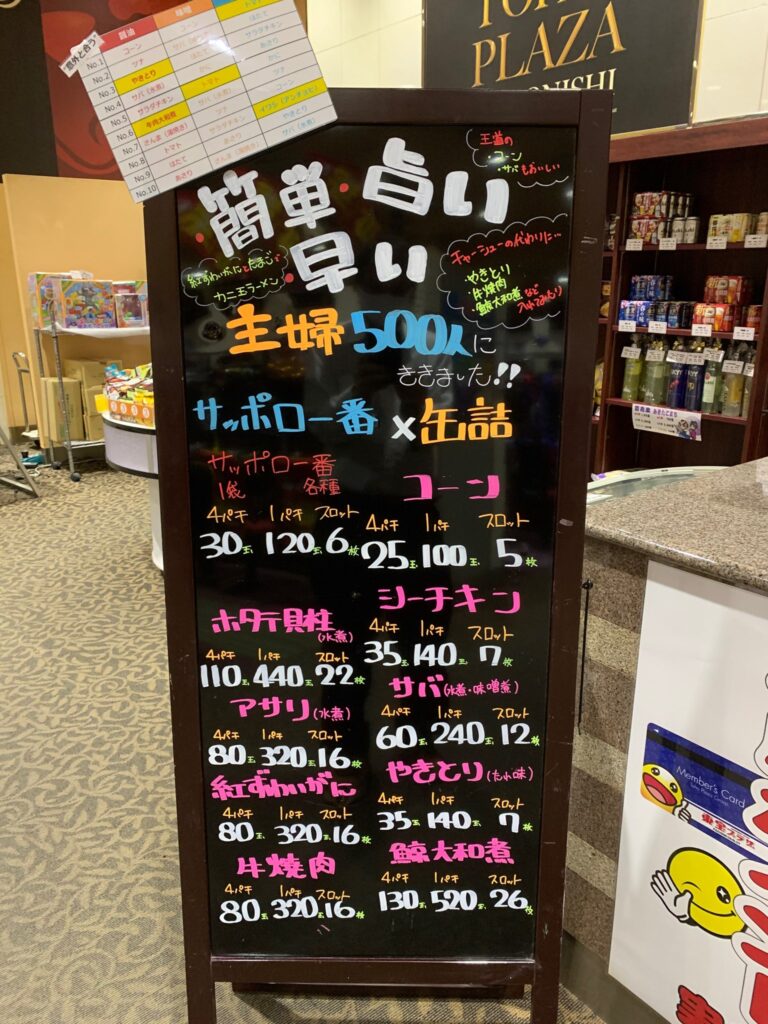 "意外と合う"
醤油 味噌
No.1 コーン コーン ほたて
No.2 ツナ サラダチキン
No.3 やきとり ほたて あさり
No.4 サバ(水煮) かに
No.5 サラダチキン トマト
No.6 牛肉大和煮 コーン
No.7 さんま(蒲焼き) ツナ イワシ(アンチョビ)
No.8 トマト やきとり
No.9 ほたて あさり サバ(水煮)
No.10 あさり
PLAZA
ONISHI
王道の
・コーン
・サバもおいしい
簡単・旨い
・早い
紅ずわいがにとたまごで
カニ玉ラーメン
チャーシューの代わりに…
・やきとり
・牛焼肉
・鯨大和煮など
入れてみたり
主婦500人に
ききました!!
サッポロ一番×缶詰
サッポロ一番
1袋 各種
4パチ 1パチ スロット
30玉 120玉 6枚
コーン
4パチ 1パチ スロット
25玉 100玉 5枚
ホタテ貝柱(水煮)
4パチ 1パチ スロット
110玉 440玉 22枚
シーチキン
4パチ 1パチ スロット
35玉 140玉 7枚
アサリ(水煮)
4パチ 1パチ スロット
80玉 320玉 16枚
サバ(水煮・味噌煮)
4パチ 1パチ スロット
60玉 240玉 12枚
紅ずわいがに
4パチ 1パチ スロット
80玉 320玉 16枚
やきとり(たれ味)
4パチ 1パチ スロット
35玉 140玉 7枚
牛焼肉
4パチ 1パチ スロット
80玉 320玉 16枚
鯨大和煮
4パチ 1パチ スロット
130玉 520玉 26枚
あきたこまち
Member's Card